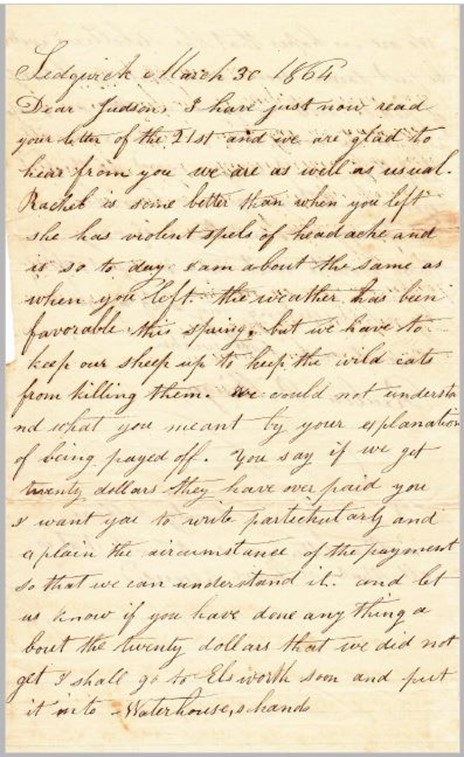 Sedgwick March 30 1864
Dear Judson, I have just now read
your letter of the 21st and we are glad to
hear from you we are as well as usual.
Rachel is some better than when you left
she has violent spels of headache and
is so to day I am about the same as
when you left. the weather has been
favorable this spring, but we have to
keep our sheep up to keep the wild cats
from killing them. we could not understa
nd what you meant by your explanation
of being payed off. You say if we get
twenty dollars they have over paid you
I want you to write particularly and
aplain the circumstance of the payment
so that we can understand it. and let
us know if you have done any thing a
bout the twenty dollars that we did not
get I shall go to Elsworth soon and put
it into Waterhouse,s hands